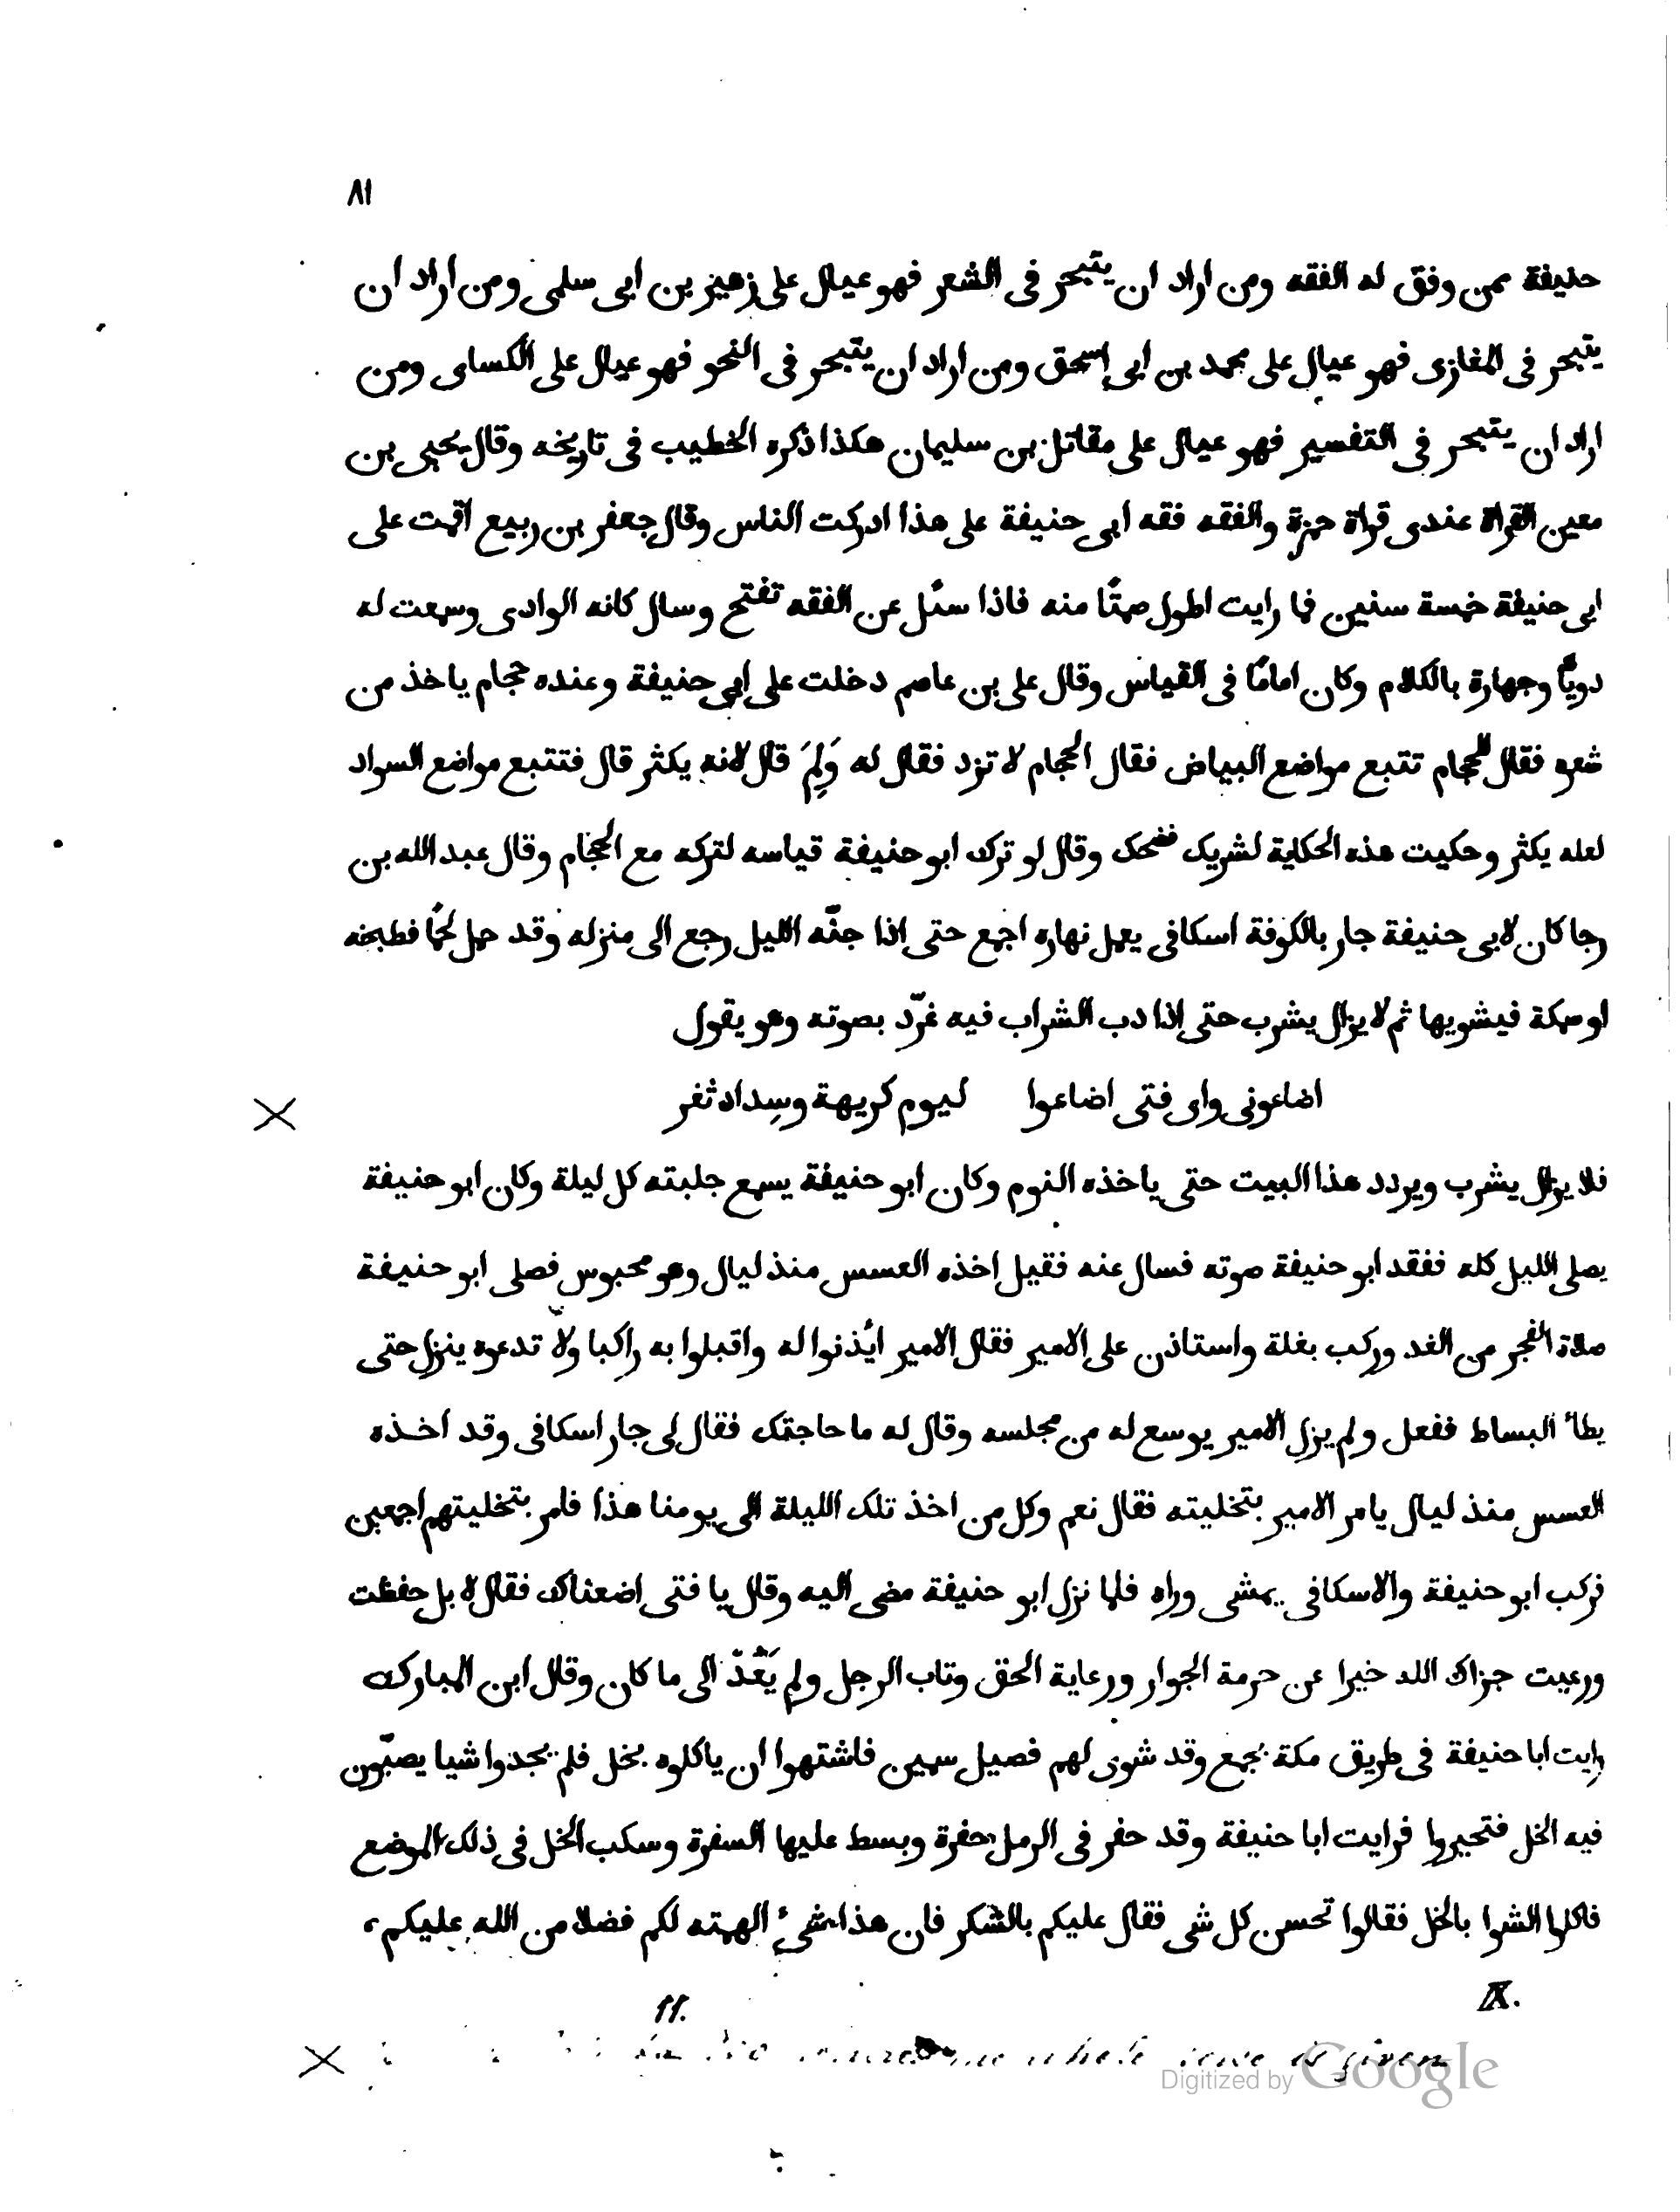 ٨١
حنيفة ممن وفق له الفقه ومن اراد ان يتبحر فى الشعر فهو عيال على زهير بن ابى سلمى ومن اراد ان
يتبحر فى المغازى فهو عيال على محمد بن ابى إسحق ومن اراد ان يتبحر فى النحو فهو عيال على الكساى ومن
اراد ان يتبحر فى التفسير فهو عيال على مقاتل بن سليمان هكذا ذكره الخطيب فى تاريخه وقال يحيى بن
معين القراة عندى قراة حمزة والفقه فقه ابى حنيفة على هذا ادركت الناس وقال جعفر بن ربيع اقمت على
ابى حنيفة خمسة سنين فما رايت اطول صمتًا منه فاذا سئل عن الفقه تفتح وسال كانه الوادى وسمعت له
دويًّا وجهارة بالكلام وكان امامًا فى القياس وقال على بن عاصم دخلت على ابى حنيفة وعنده حجام ياخذ من
شعره فقال للحجام تتبع مواضع البياض فقال الحجام لا تزد فقال له وَلِمَ قال لانه يكثر قال فتتبع مواضع السواد
لعله يكثر وحكيت هذه الحكاية لشريك فضحك وقال لو ترك ابو حنيفة قياسه لتركه مع الحجّام وقال عبد الله بن
رجا كان لابى حنيفة جار بالكوفة اسكافى يعمل نهاره اجمع حتى اذا جنّه الليل رجع الى منزله وقد حمل لحمًا فطبخه
او سمكة فيشويها ثم لا يزال يشرب حتى اذا دب الشراب فيه غرّد بصوته وهو يقول
اضاعونى واى فتى اضاعوا ليوم كريهة وسِداد ثغر
فلا يزال يشرب ويردد هذا البيت حتى ياخذه النوم وكان ابو حنيفة يسمع جلبته كل ليلة وكان ابو حنيفة
يصلى الليل كله ففقد ابو حنيفة صوته فسال عنه فقيل اخذه العسس منذ ليال وهو محبوس فصلى ابو حنيفة
صلاة الفجر من الغد وركب بغلة واستاذن على الامير فقال الامير ائذنوا له واقبلوا به راكبا ولا تدعوه ينزل حتى
يطأ البساط ففعل ولم يزل الامير يوسع له من مجلسه وقال له ما حاجتك فقال لى جار اسكافى وقد اخذه
العسس منذ ليال يامر الامير بتخليته فقال نعم وكل من اخذ تلك الليلة الى يومنا هذا فامر بتخليتهم اجمعين
فركب ابو حنيفة والاسكافى يمشى وراه فلما نزل ابو حنيفة مضى اليه وقال يا فتى اضعناك فقال لا بل حفظت
ورعيت جزاك الله خيرا عن حرمة الجوار ورعاية الحق وتاب الرجل ولم يَعُد الى ما كان وقال ابن المبارك
رايت ابا حنيفة فى طريق مكة بجمع وقد شوى لهم فصيل سمين فاشتهوا ان ياكلوه بخل فلم يجدوا شيا يصبّون
فيه الخل فتحيروا فرايت ابا حنيفة وقد حفر فى الرمل حفرة وبسط عليها السفرة وسكب الخل فى ذلك الموضع
فاكلوا الشوا بالخل فقالوا تحسن كل شى فقال عليكم بالشكر فان هذا شىء الهمته لكم فضلا من الله عليكم،
11. IX.
is given
Digitized by Google